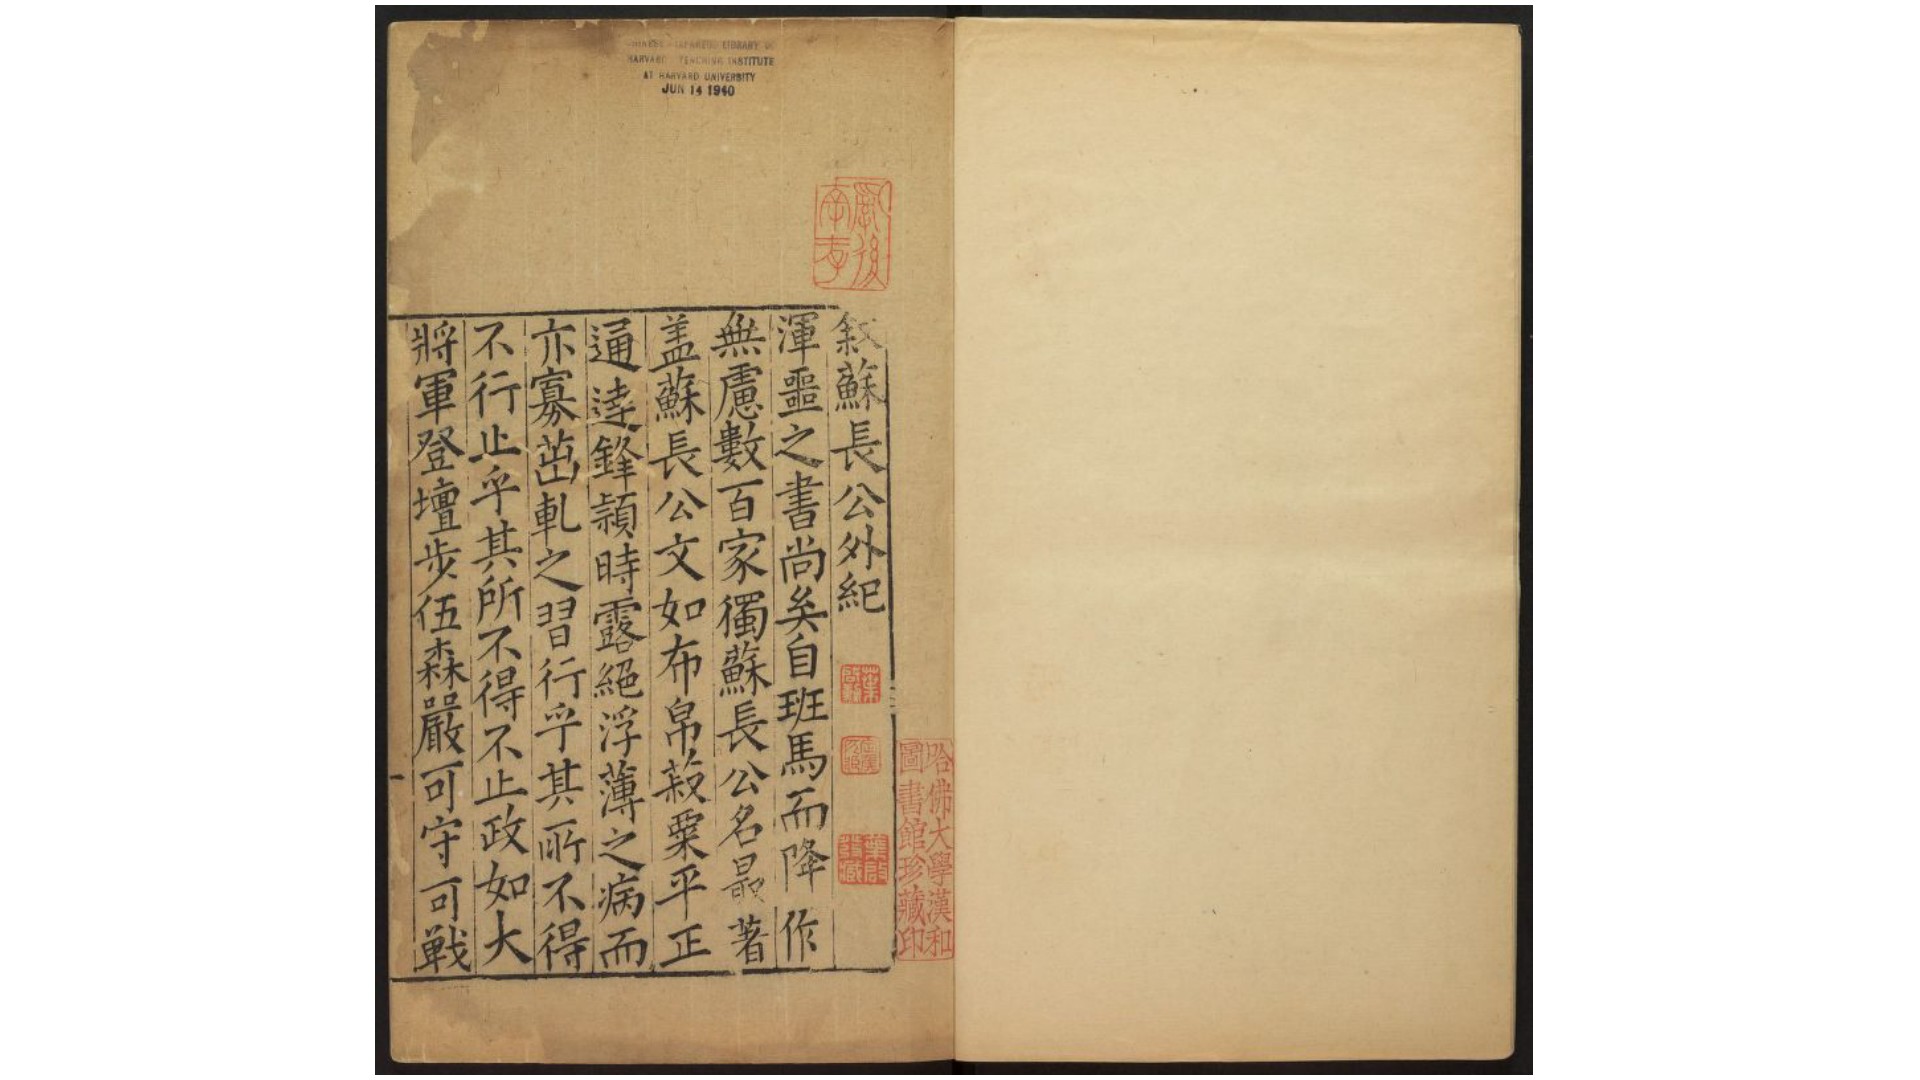 敘蘇長公外紀
渾噩之書尚矣自班馬而降作
無慮數百家獨蘇長公名最著
盖蘇長公文如布帛菽粟平正
通達鋒頴時露絕浮薄之病而
亦寡茁軋之習行乎其所不得
不行止乎其所不得不止政如大
將軍登壇步伍森嚴可守可戰
哈佛大學漢和
圖書館珍藏印
CHINESE-JAPANESE LIBRARY OF
HARVARD YENCHING INSTITUTE
AT HARVARD UNIVERSITY
JUN 14 1940